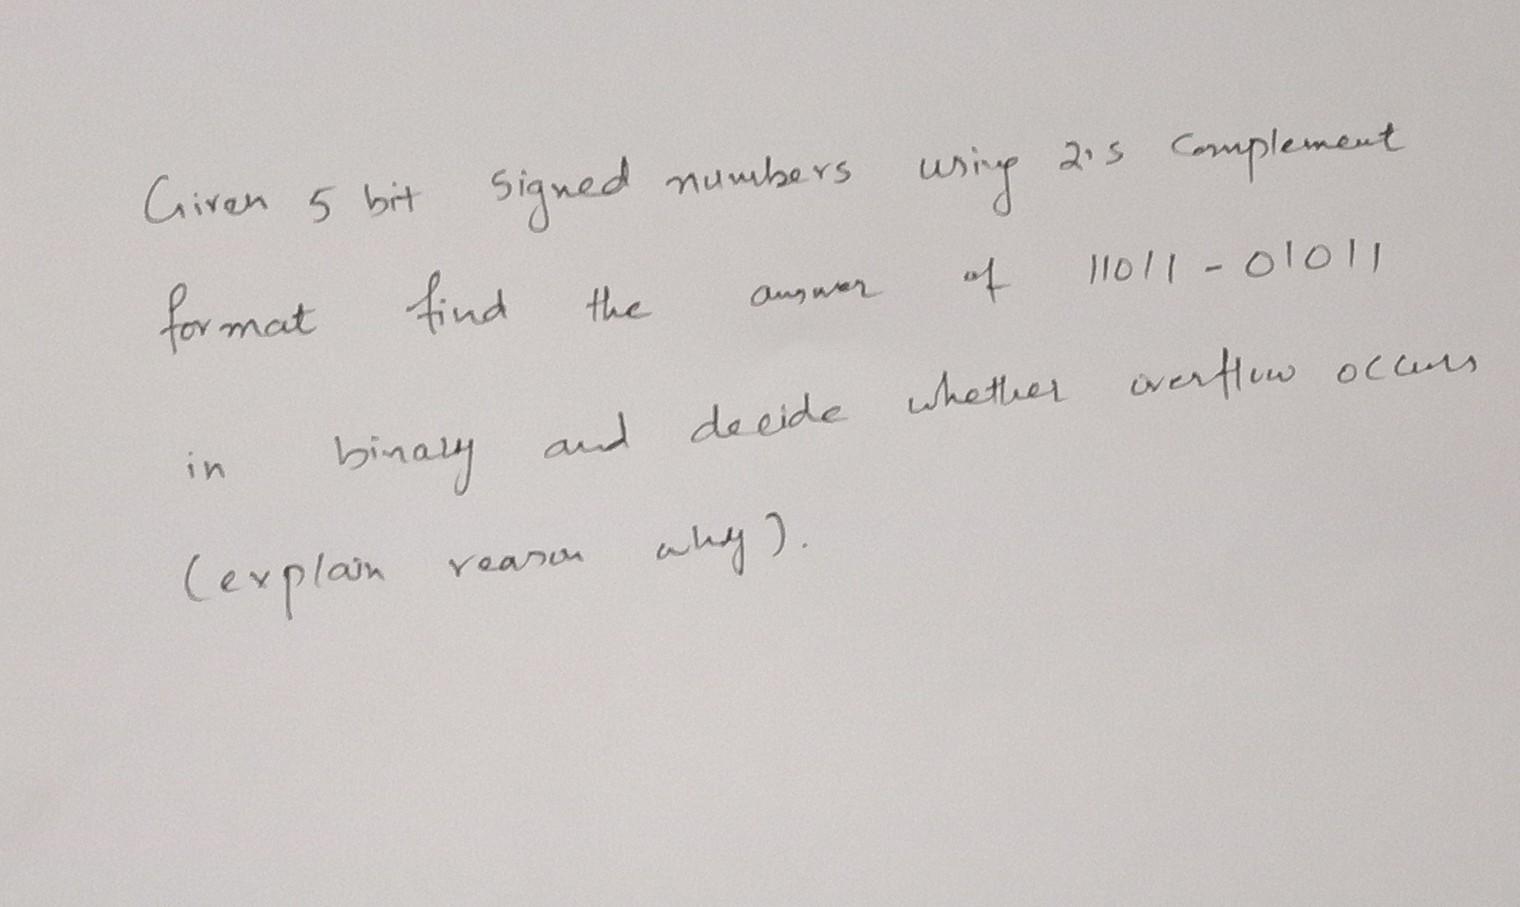 Given 5 bit signed numbers using 2's complement
format find the answer of 11011 - 01011
in binary and decide whether overflow occurs
(explain reason why).